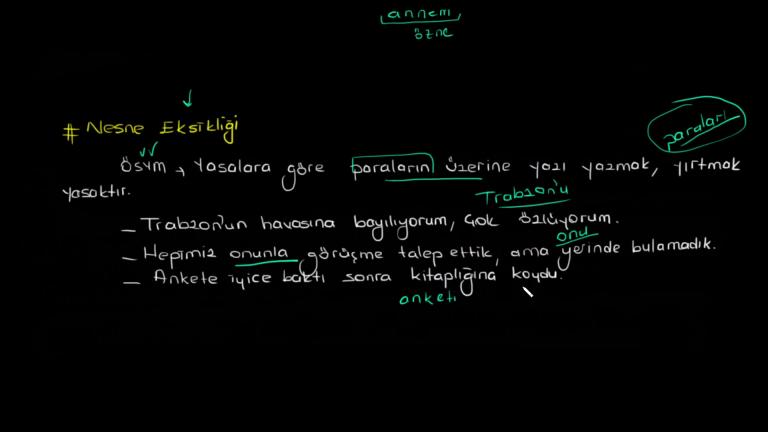 annem
özne
# Nesne Eksikliği
paraları
ÖSYM → Yasalara göre paraların üzerine yazı yazmak, yırtmak
yasaktır.
Trabzon'u
– Trabzon'un havasına bayılıyorum, çok özlüyorum.
onu
– Hepimiz onunla görüşme talep ettik, ama yerinde bulamadık.
– Ankete iyice baktı sonra kitaplığına koydu.
anketi